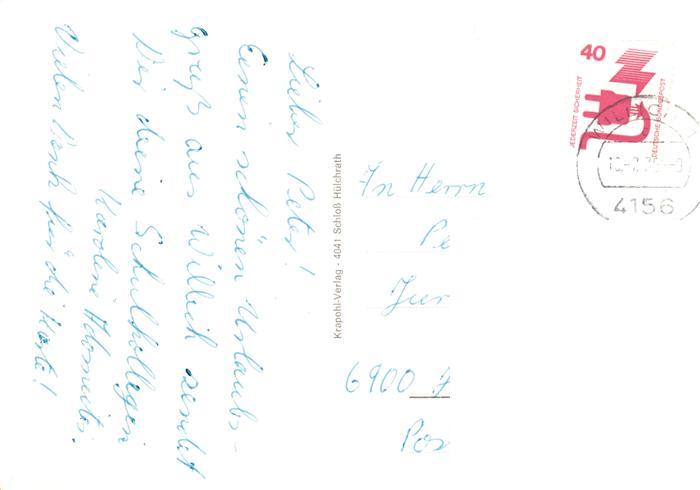 Lieber Peter!
Einen schönen Urlaubs-
gruß aus Willich sendet
Dir deine Schulkollegin
Karoline
Vielen Dank für die Karte!
Krapohl-Verlag - 4041 Schloß Hülchrath
An Herrn
Pe
Jur
6900
Pos
40
JEDERZEIT SICHERHEIT
DEUTSCHE BUNDESPOST
4156